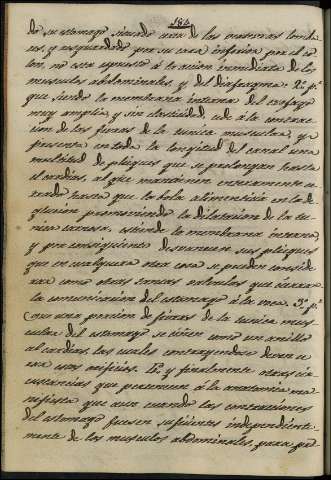 184.
do su estomago situado una de las visceras lumba-
res, y resguardado por su cara inferior por el co-
lon, no esta espuesto á la accion inmediata de los
musculos abdominales, y del diafragma. 2.º p.r
que siendo la membrana interna del esofago
muy amplia, y sin elasticidad, cede á la contrac-
cion de las fibras de la tunica musculosa, y
presenta en toda la longitud del canal una
multitud de pliegues que se prolongan hasta
el cardias, al que mantienen enteramente ce-
rrado hasta que la bola alimenticia en la de
glucion promoviendo la dilatacion de la tu-
nica carnosa, estiende la membrana interna,
y por consiguiente desvanece sus pliegues
que en cualquiera otra cosa se pueden conside
rar como otras tantas valvulas que cierran
la comunicacion del estomago á la voca. 3.º p.r
que una porcion de fibras de la tunica mus-
cular del estomago se ciñen como un anillo
al cardias, las cuales contrayendose deven ce-
rrar este orificio. Y finalmente otras cir
custancias que presenta á la anatomia ma-
nifiesta que aun cuando las contracciones
del estomago fuesen suficientes independiente-
mente de los musculos abdominales, para pod-